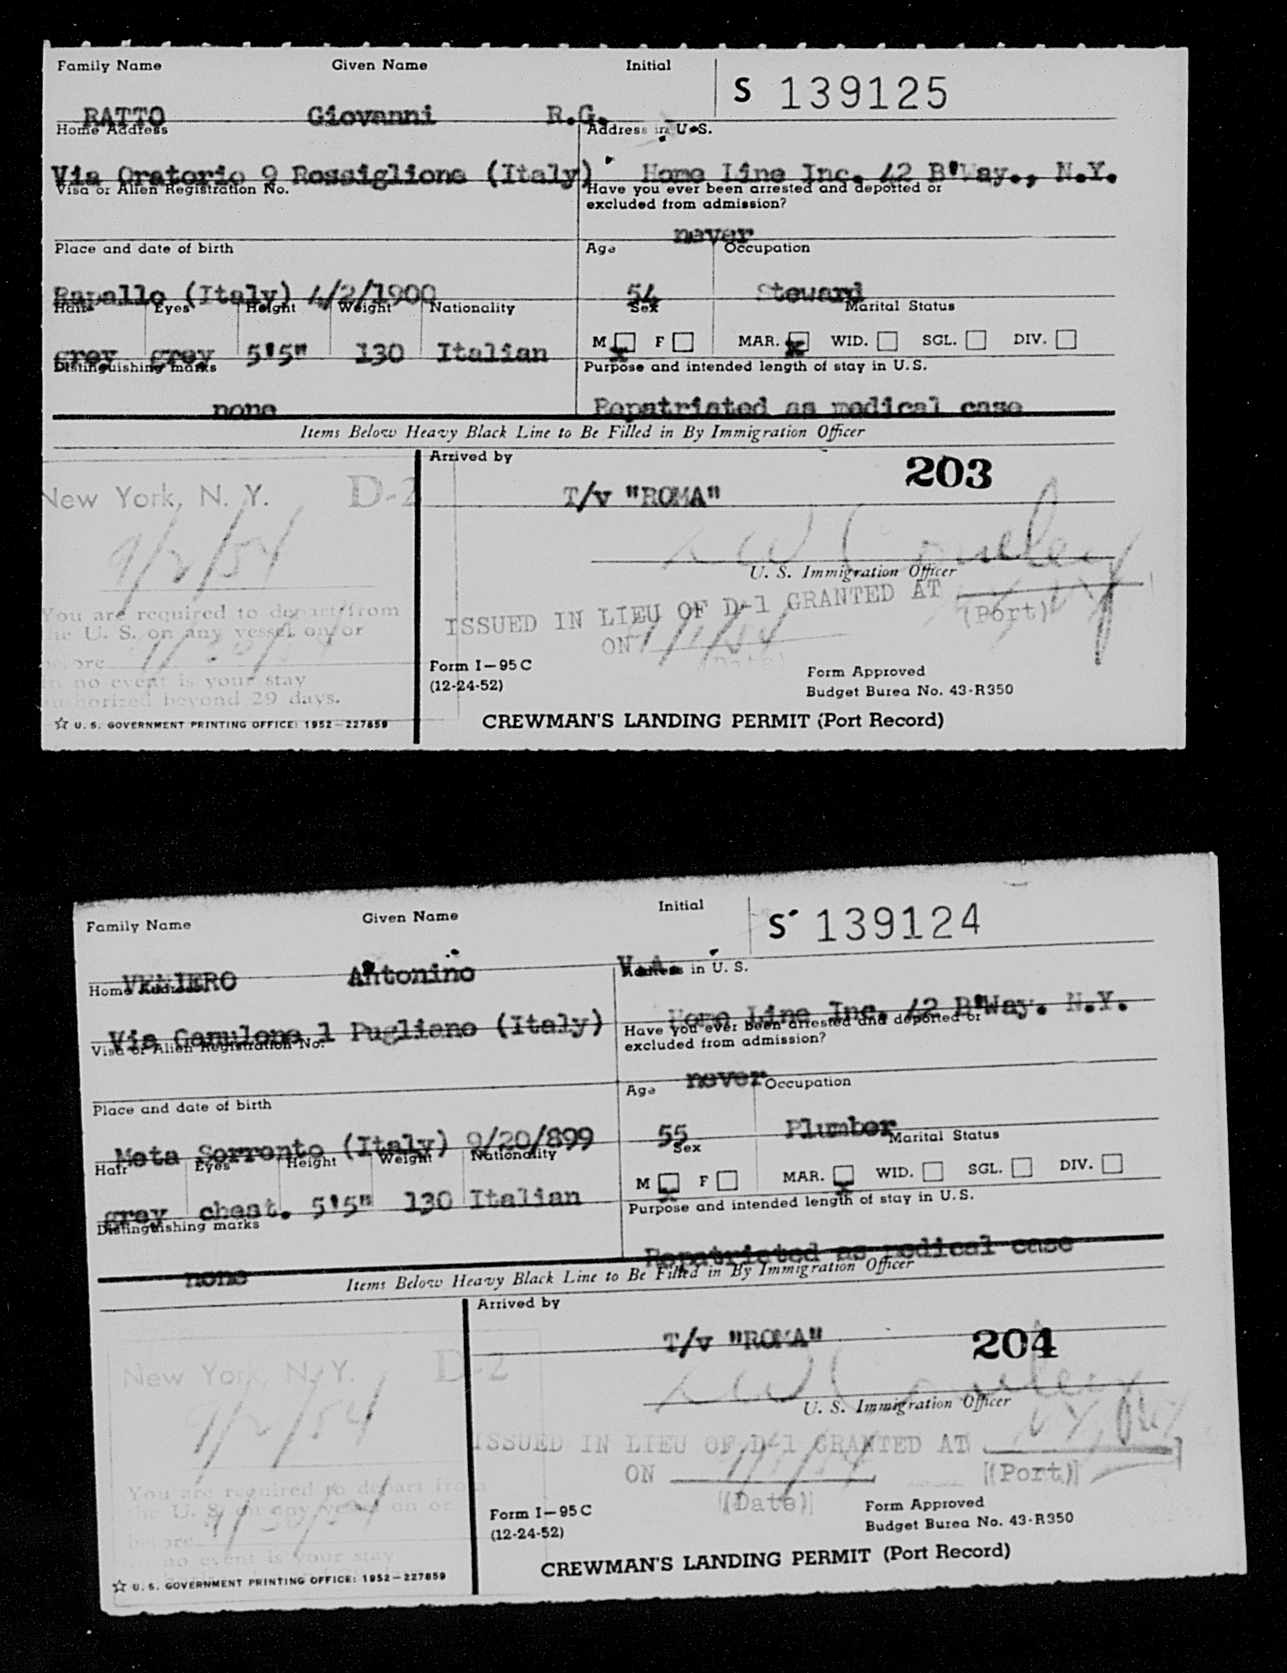 Family Name Given Name Initial
S 139125
RATTO Giovanni R.G.
Home Address Address in U.S.
Via Oratorio 9 Rossiglione (Italy) Home Line Inc. 42 B'Way., N.Y.
Visa or Alien Registration No. Have you ever been arrested and deported or
excluded from admission?
never
Place and date of birth Age Occupation
Rapallo (Italy) 4/2/1900 54 Steward
Hair Eyes Height Weight Nationality Sex Marital Status
grey grey 5'5" 130 Italian M x F MAR. x WID. SGL. DIV.
Distinguishing marks Purpose and intended length of stay in U.S.
none Repatriated as medical case
Items Below Heavy Black Line to Be Filled in By Immigration Officer
Arrived by
203
New York, N. Y. D-2 T/v "ROMA"
9/2/54
U. S. Immigration Officer
ISSUED IN LIEU OF D-1 GRANTED AT
(Port)
You are required to depart from
the U. S. on any vessel on or
ON 9/1/54
before
(Date)
in no event is your stay
authorized beyond 29 days.
Form I-95 C Form Approved
(12-24-52) Budget Burea No. 43-R350
☆ U. S. GOVERNMENT PRINTING OFFICE: 1952-227859 CREWMAN'S LANDING PERMIT (Port Record)
Family Name Given Name Initial
S 139124
VENIERO Antonino V.A.
Home Address Address in U. S.
Via Gamulone 1 Pugliano (Italy) Home Line Inc. 42 B'Way. N.Y.
Visa or Alien Registration No. Have you ever been arrested and deported or
excluded from admission?
never
Place and date of birth Age Occupation
Meta Sorrento (Italy) 9/20/899 55 Plumber
Hair Eyes Height Weight Nationality Sex Marital Status
grey chest. 5'5" 130 Italian M x F MAR. x WID. SGL. DIV.
Distinguishing marks Purpose and intended length of stay in U.S.
none Repatriated as medical case
Items Below Heavy Black Line to Be Filled in By Immigration Officer
Arrived by
T/v "ROMA" 204
New York, N. Y. D-2
9/2/54
U. S. Immigration Officer
ISSUED IN LIEU OF D-1 GRANTED AT
ON 9/1/54 (Port)
(Date)
You are required to depart from
the U. S. on any vessel on or
before
no event is your stay
Form I-95 C Form Approved
(12-24-52) Budget Burea No. 43-R350
☆ U. S. GOVERNMENT PRINTING OFFICE: 1952-227859 CREWMAN'S LANDING PERMIT (Port Record)